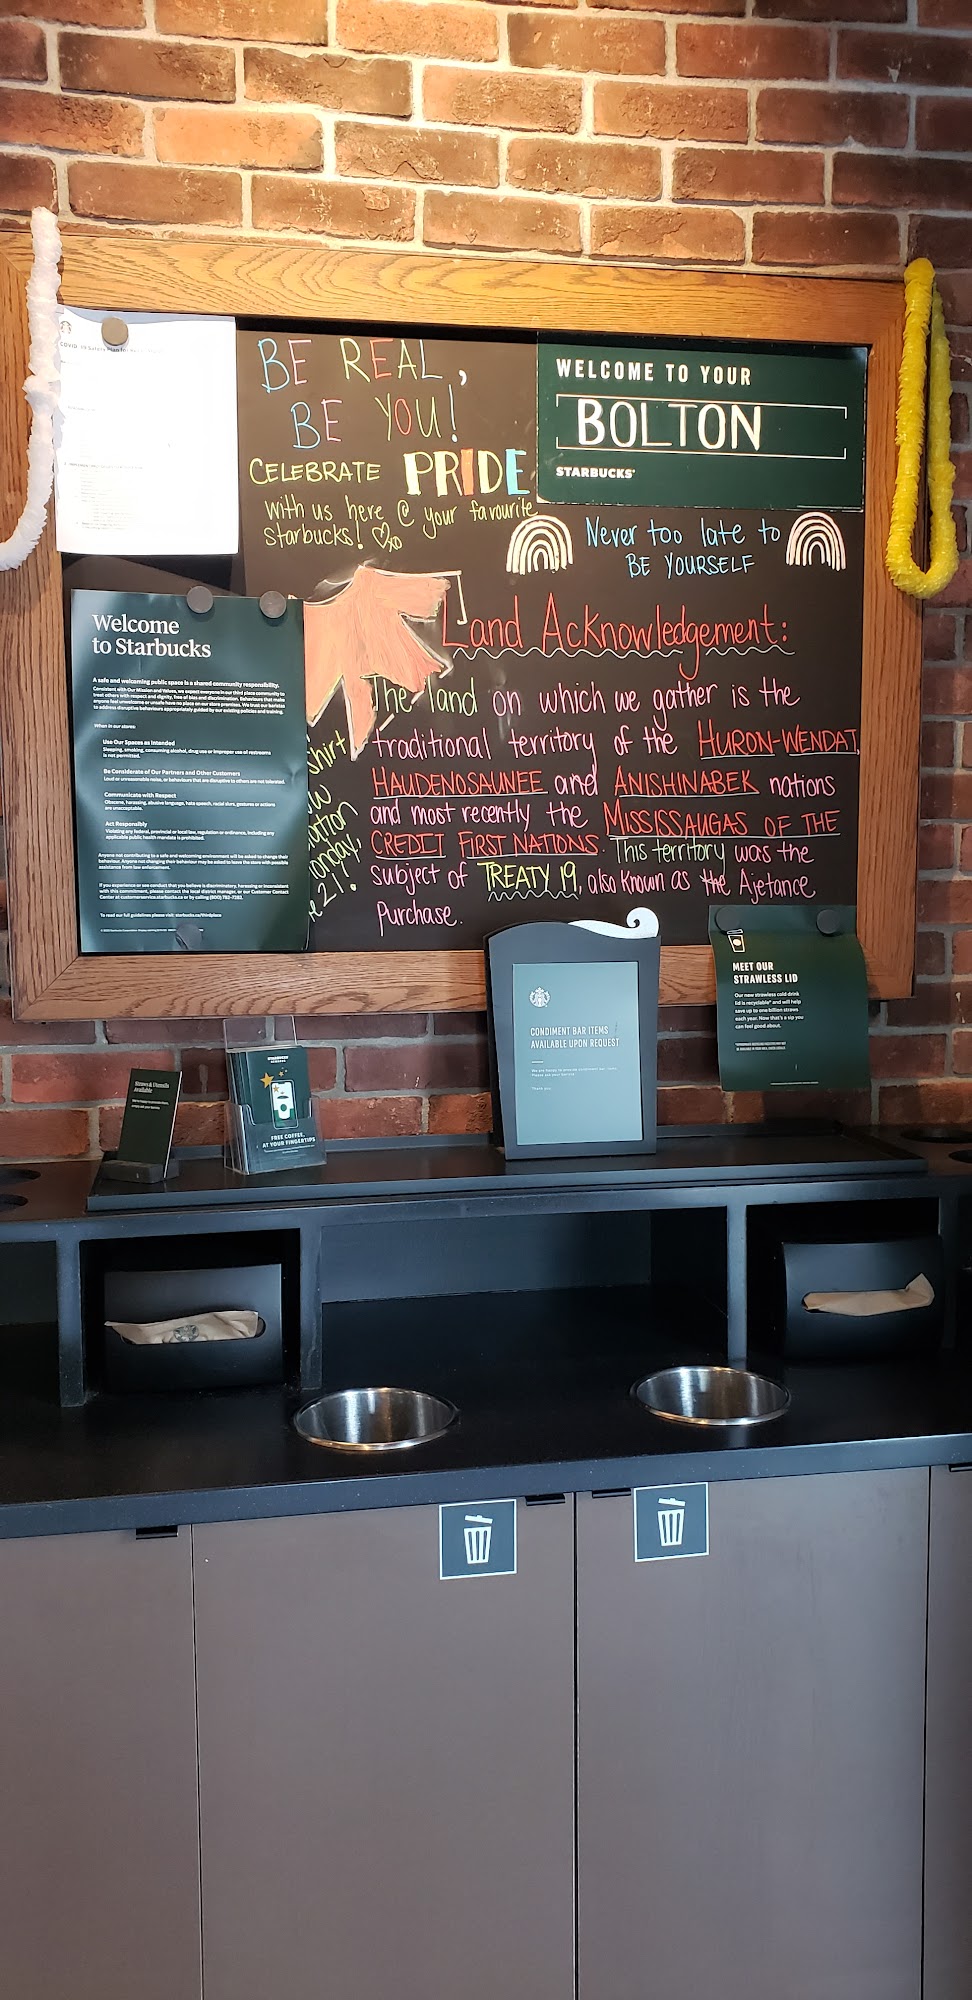 BE REAL,
BE YOU!
CELEBRATE PRIDE
with us here @ your favourite
Starbucks! xo
WELCOME TO YOUR
BOLTON
STARBUCKS®
Never too late to
BE YOURSELF
Land Acknowledgement:
The land on which we gather is the
traditional territory of the HURON-WENDAT,
HAUDENOSAUNEE and ANISHINABEK nations
and most recently the MISSISSAUGAS OF THE
CREDIT FIRST NATIONS. This territory was the
subject of TREATY 19, also known as the Ajetance
Purchase.
Welcome
to Starbucks
A safe and welcoming public space is a shared community responsibility.
Consistent with Our Mission and Values, we expect everyone in our third place community to
treat others with respect and dignity, free of bias and discrimination. Behaviours that make
anyone feel unwelcome or unsafe have no place on our store premises. We trust our baristas
to address disruptive behaviours appropriately guided by our existing policies and training.
When in our stores:
Use Our Spaces as Intended
Sleeping, smoking, consuming alcohol, drug use or improper use of restrooms
is not permitted.
Be Considerate of Our Partners and Other Customers
Loud or unreasonable noise, or behaviours that are disruptive to others are not tolerated.
Communicate with Respect
Obscene, harassing, abusive language, hate speech, racial slurs, gestures or actions
are unacceptable.
Act Responsibly
Violating any federal, provincial or local law, regulation or ordinance, including any
applicable public health mandate is prohibited.
Anyone not contributing to a safe and welcoming environment will be asked to change their
behaviour. Anyone not changing their behaviour may be asked to leave the store with possible
assistance from law enforcement.
If you experience or see conduct that you believe is discriminatory, harassing or inconsistent
with this commitment, please contact the local district manager, or our Customer Contact
Center at customerservice.starbucks.ca or by calling (800) 782-7282.
To read our full guidelines please visit: starbucks.ca/thirdplace
MEET OUR
STRAWLESS LID
Our new strawless cold drink
lid is recyclable* and will help
save up to one billion straws
each year. Now that's a sip you
can feel good about.
CONDIMENT BAR ITEMS
AVAILABLE UPON REQUEST
Thank you.
Straws & Utensils
Available
FREE COFFEE,
AT YOUR FINGERTIPS